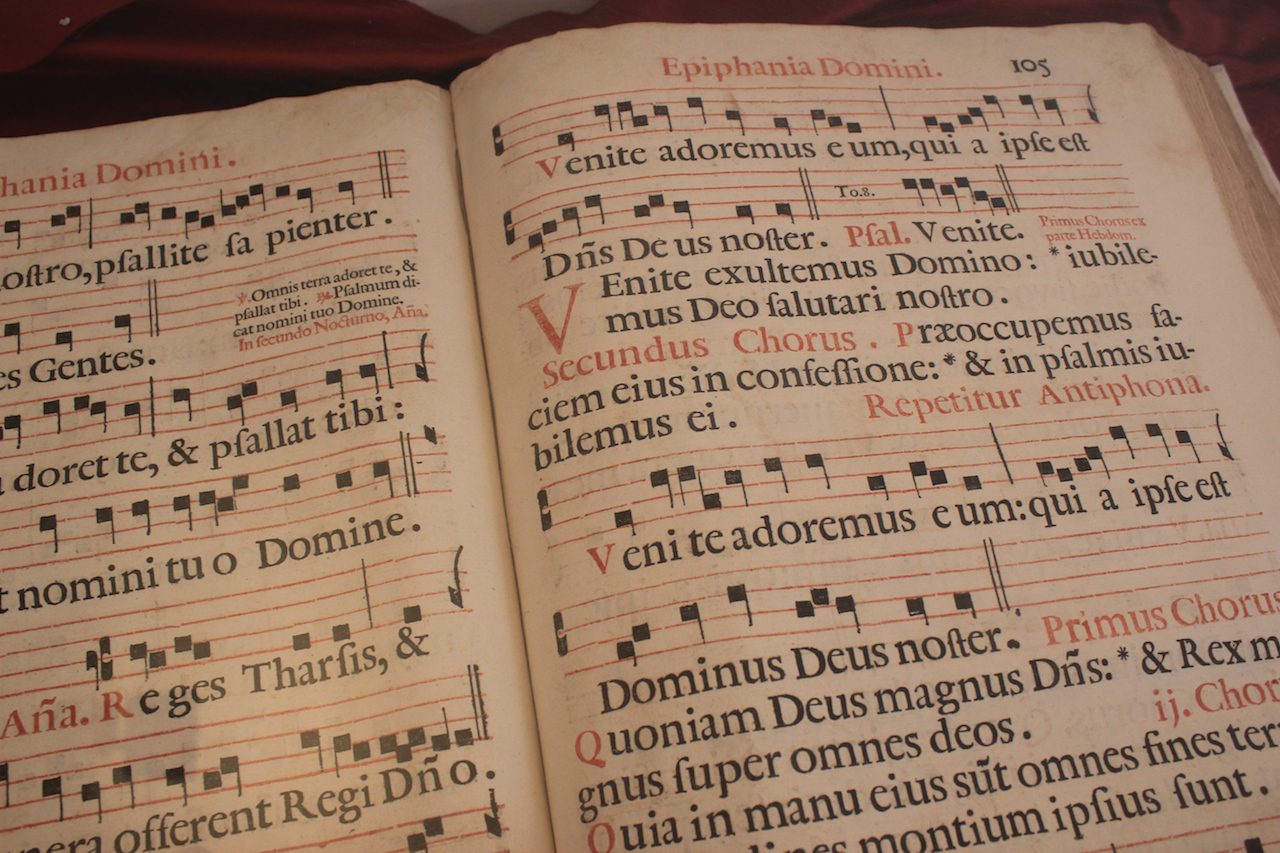 hania Domini.
ostro, psallite sa pienter.
℣. Omnis terra adoret te, &
psallat tibi. ℟. Psalmum di-
cat nomini tuo Domine.
In secundo Nocturno, Aña.
es Gentes.
adoret te, & psallat tibi:
t nomini tu o Domine.
Aña. Re ges Tharsis, &
nera offerent Regi Dño.
Epiphania Domini. 105
Venite adoremus e um, qui a ipse est
To. 8.
Dñs De us noster. Psal. Venite.
Primus Chorus ex
parte Hebdom.
VEnite exultemus Domino: * iubile-
mus Deo salutari nostro.
Secundus Chorus. Præoccupemus fa-
ciem eius in confessione: * & in psalmis iu-
bilemus ei. Repetitur Antiphona.
Veni te adoremus e um: qui a ipse est
Dominus Deus noster. Primus Chorus
Quoniam Deus magnus Dñs: * & Rex m
gnus super omnes deos. ij. Chor
Quia in manu eius sũt omnes fines ter
dines montium ipsius sunt.